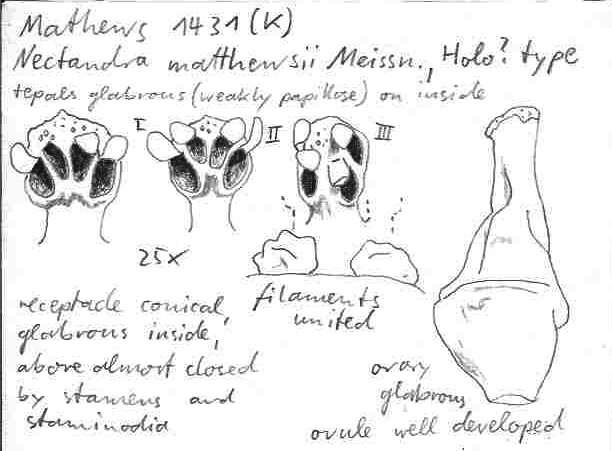 Mathews 1431 (K)
Nectandra matthewsii Meissn., Holo? type
tepals glabrous (weakly papillose) on inside
I
II
III
25x
filaments
united
receptacle conical,
glabrous inside,
above almost closed
by stamens and
staminodia
ovary
glabrous
ovule well developed